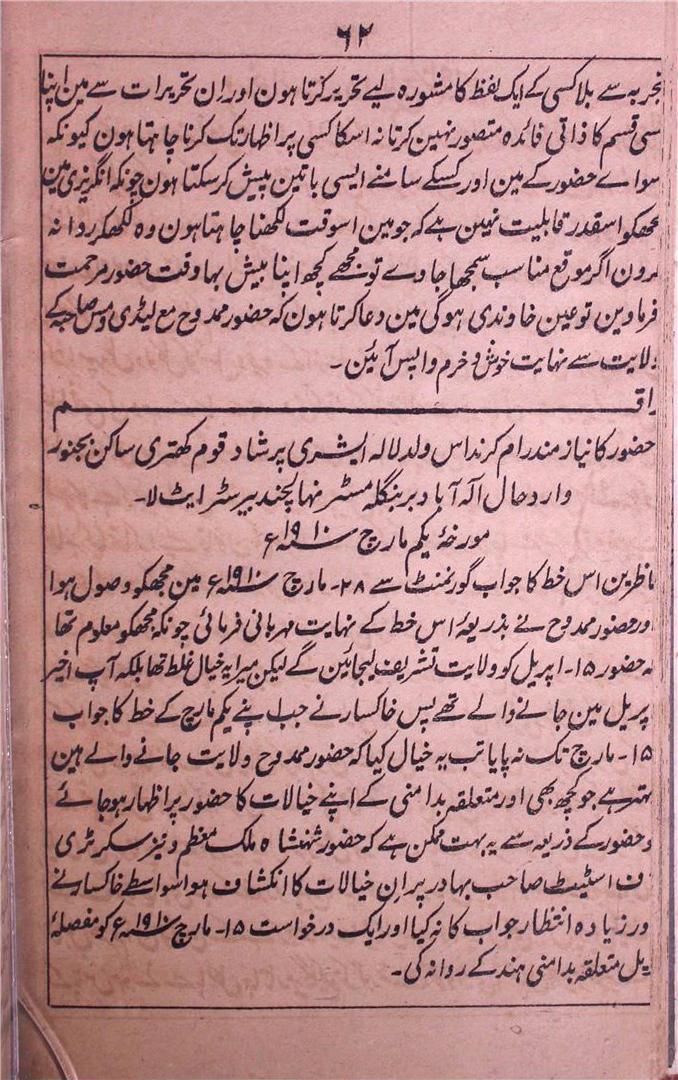 ۶۲
تجربہ سے بلا کسی کے ایک لفظ کا مشورہ لیے تحریر کرتا ہون اور اِن تحریرات سے مین اپنا
سی قسم کا ذاتی فائدہ متصور نہین کرتا نہ اسکا کسی پر اظہار تک کرنا چاہتا ہون کیونکہ
سواے حضور کے مین اور کسکے سامنے ایسی باتین پیش کر سکتا ہون چونکہ انگریزی مین
مجھکو اسقدر قابلیت نہین ہے کہ جو مین اسوقت لکھنا چاہتا ہون وہ لکھکر روانہ
رون اگر موقع مناسب سمجھا جاوے تو مجھے کچھ اپنا بیش بہا وقت حضور مرحمت
فرماوین تو عین خاوندی ہوگی مین دعا کرتا ہون کہ حضور ممدوح مع لیڈی ومس صاحبہ کے
ولایت سے نہایت خوش و خرم واپس آئین۔
راقم
حضور کا نیازمند رام کرنداس ولد لالہ ایشری پرشاد قوم کھتری ساکن بجنور
وارد حال الہ آباد بر بنگلہ مسٹر نہالچند بیرسٹر ایٹ لا۔
مورخۂ یکم مارچ سنہ ۱۹۱۰ء
ناظرین اس خط کا جواب گورنمنٹ سے ۲۸۔ مارچ سنہ ۱۹۱۰ء مین مجھکو وصول ہوا
اور حضور ممدوح نے بذریعۂ اس خط کے نہایت مہربانی فرمائی چونکہ مجھکو معلوم تھا
کہ حضور ۱۵۔ اپریل کو ولایت تشریف لیجائین گے لیکن میرا یہ خیال غلط تھا بلکہ آپ اخیر
پریل مین جانے والے تھے پس خاکسار نے جب اپنے یکم مارچ کے خط کا جواب
۱۵۔ مارچ تک نہ پایا تب یہ خیال کیا کہ حضور ممدوح ولایت جانے والے ہین
بہتر ہے جو کچھ بھی اور متعلقہ بدامنی کے اپنے خیالات کا حضور پر اظہار ہوجائے
و حضور کے ذریعہ سے یہ بہت ممکن ہے کہ حضور شہنشاہ ملک معظم و نیز سکرٹری
ف اسٹیٹ صاحب بہادر پر ان خیالات کا انکشاف ہو اسواسطے خاکسار نے
ور زیادہ انتظار جواب کا نہ کیا اور ایک درخواست ۱۵۔ مارچ سنہ ۱۹۱۰ء کو مفصلۂ
یل متعلقہ بدامنی ہند کے روانہ کی۔